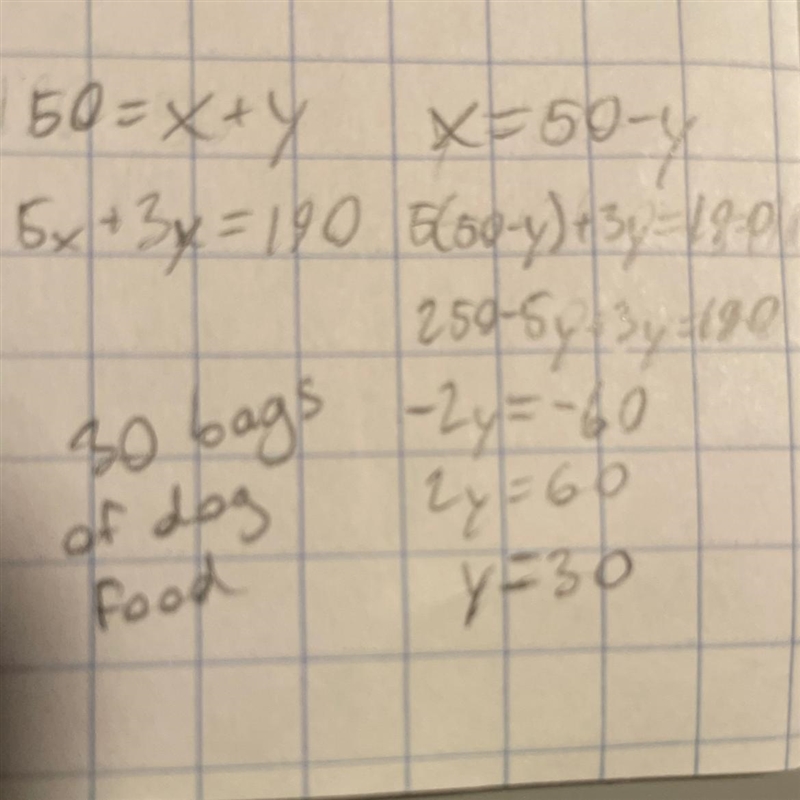 50=x+y
5x+3y=190
30 bags
of dog
food
x=50-y
5(50-y)+3y=190
250-5y+3y=190
-2y=-60
2y=60
y=30